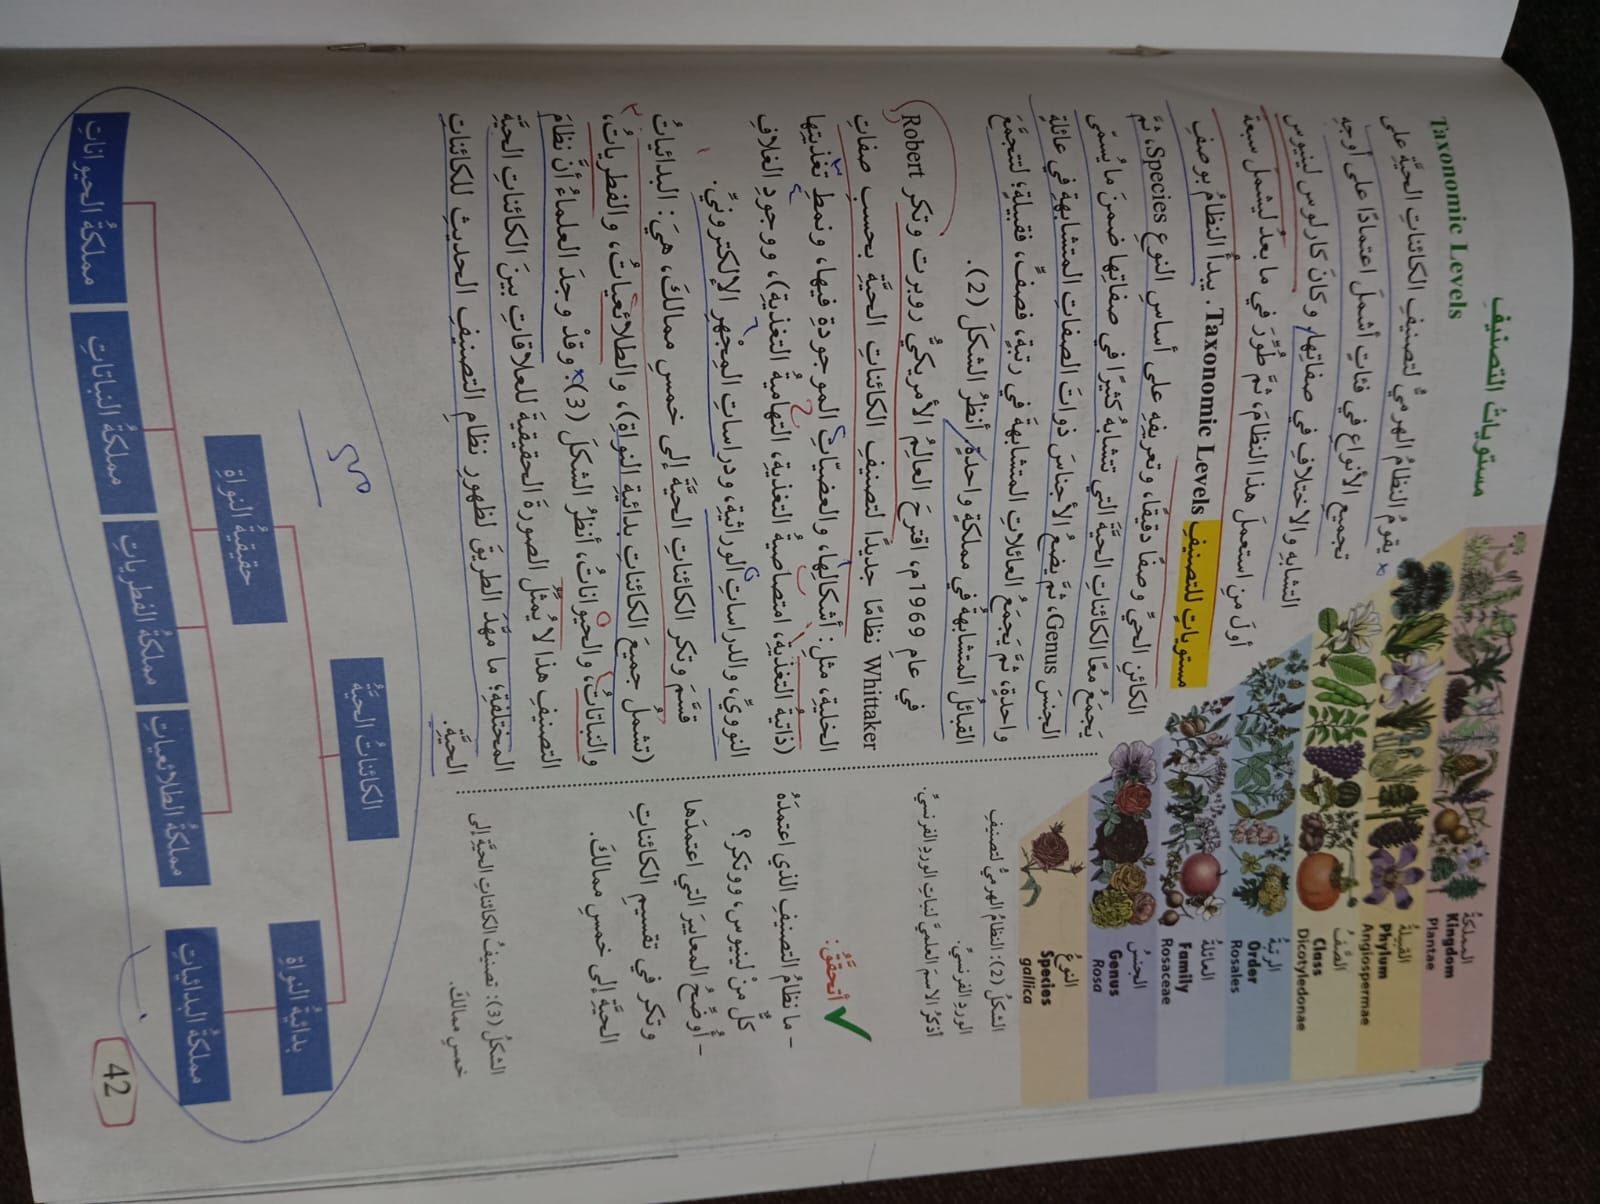 مستوياتُ التصنيفِ
Taxonomic Levels
يقومُ النظامُ الهرميُّ لتصنيفِ الكائناتِ الحيَّةِ على
تجميعِ الأنواعِ في فئاتٍ أشملَ اعتمادًا على أوجهِ
التشابهِ والاختلافِ في صفاتِها، وكانَ كارلوس لينيوس
أولَ منِ استعملَ هذا النظامَ، ثمَّ طُوِّرَ في ما بعدُ ليشملَ سبعةَ
مستوياتٍ للتصنيفِ Taxonomic Levels. يبدأُ النظامُ بوصفِ
الكائنِ الحيِّ وصفًا دقيقًا، وتعريفِهِ على أساسِ النوعِ Species، ثمَّ
يَجمَعُ معًا الكائناتِ الحيَّةَ التي تتشابهُ كثيرًا في صفاتِها ضمنَ ما يُسمّى
الجنسَ Genus، ثمَّ يضعُ الأجناسَ ذواتَ الصفاتِ المتشابهةِ في عائلةٍ
واحدةٍ، ثمَّ يَجمَعُ العائلاتِ المتشابهةَ في رتبةٍ، فصفٍّ، فقبيلةٍ؛ لتتجمَّعَ
القبائلُ المتشابهةُ في مملكةٍ واحدةٍ، أنظرُ الشكلَ (2).
في عامِ 1969م، اقترحَ العالِمُ الأمريكيُّ روبرت وتكر Robert
Whittaker نظامًا جديدًا لتصنيفِ الكائناتِ الحيَّةِ بحسبِ صفاتِ
الخليةِ، مثلِ: أشكالِها، والعضيّاتِ الموجودةِ فيها، ونمطِ تغذيتِها
(ذاتيةُ التغذيةِ، امتصاصيةُ التغذيةِ، التهاميةُ التغذيةِ)، ووجودِ الغلافِ
النوويِّ، والدراساتِ الوراثيةِ، ودراساتِ المِجْهرِ الإلكترونيِّ.
قسَّمَ وتكر الكائناتِ الحيَّةَ إلى خمسِ ممالكَ، هيَ: البدائياتُ
(تشملُ جميعَ الكائناتِ بدائيةِ النواةِ)، والطلائعياتُ، والفطرياتُ،
والنباتاتُ، والحيواناتُ، أنظرُ الشكلَ (3). وقدْ وجدَ العلماءُ أنَّ نظامَ
التصنيفِ هذا لا يُمثِّلُ الصورةَ الحقيقيةَ للعلاقاتِ بينَ الكائناتِ الحيَّةِ
المختلفةِ؛ ما مهَّدَ الطريقَ لظهورِ نظامِ التصنيفِ الحديثِ للكائناتِ
الحيَّةِ.
المملكةُ
Kingdom
Plantae
القبيلةُ
Phylum
Angiospermae
الصَّفُّ
Class
Dicotyledonae
الرتبةُ
Order
Rosales
العائلةُ
Family
Rosaceae
الجنسُ
Genus
Rosa
النوعُ
Species
gallica
الشكلُ (2): النظامُ الهرميُّ لتصنيفِ
الوردِ الفرنسيِّ.
أذكرُ الاسمَ العلميَّ لنباتِ الوردِ الفرنسيِّ.
أتحقَّقُ:
- ما نظامُ التصنيفِ الذي اعتمدَهُ
كلٌّ منْ لينيوس، ووتكر؟
- أُوضِّحُ المعاييرَ التي اعتمدَها
وتكر في تقسيمِ الكائناتِ
الحيَّةِ إلى خمسِ ممالكَ.
الشكلُ (3): تصنيفُ الكائناتِ الحيَّةِ إلى
خمسِ ممالكَ.
الكائناتُ الحيَّةُ
بدائيةُ النواةِ
حقيقيةُ النواةِ
مملكةُ البدائياتِ
مملكةُ الطلائعياتِ
مملكةُ الفطرياتِ
مملكةُ النباتاتِ
مملكةُ الحيواناتِ
42